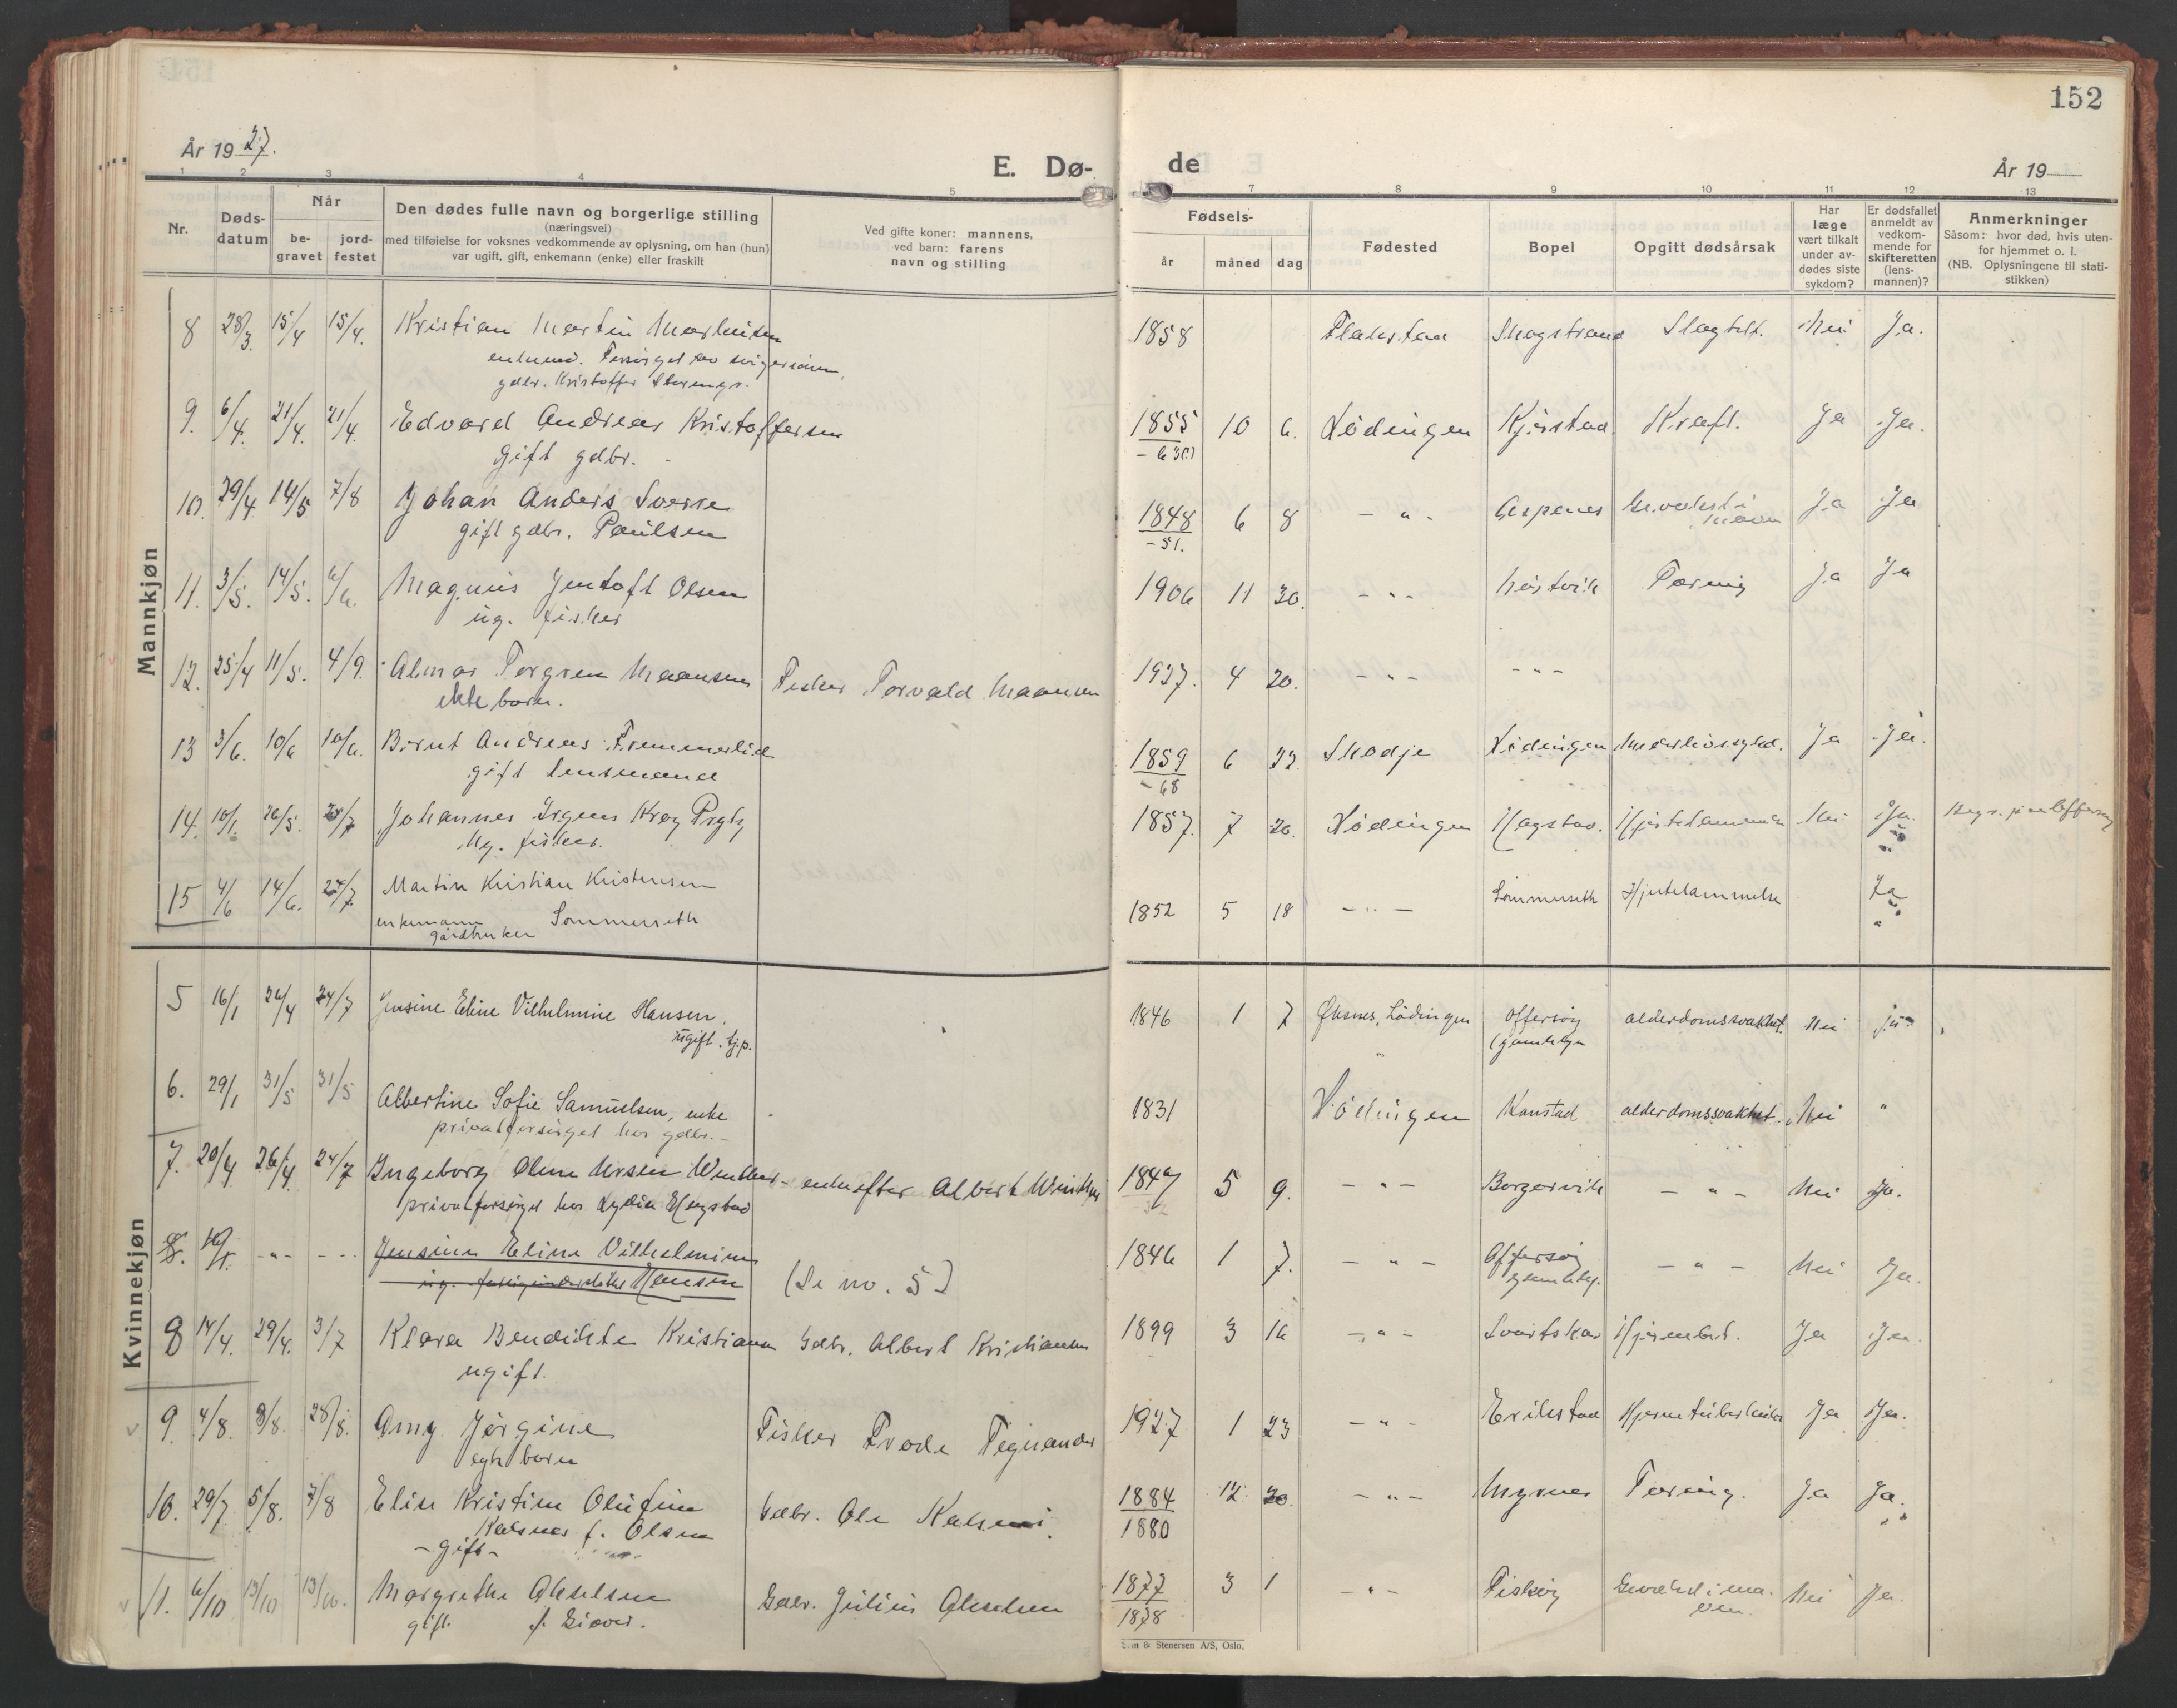 152
År 19 27.
E. Dø-
de
År 19
1 2 3 4 5
7 8 9 10 11 12 13
Nr.
Døds-
datum
Når
be-
gravet
jord-
festet
Den dødes fulle navn og borgerlige stilling
(næringsvei)
med tilføielse for voksnes vedkommende av oplysning, om han (hun)
var ugift, gift, enkemann (enke) eller fraskilt
Ved gifte koner: mannens,
ved barn: farens
navn og stilling
Fødsels-
år måned dag
Fødested
Bopel
Opgitt dødsårsak
Har
læge
vært tilkalt
under av-
dødes siste
sykdom?
Er dødsfallet
anmeldt av
vedkom-
mende for
skifteretten
(lens-
mannen)?
Anmerkninger
Såsom: hvor død, hvis uten-
for hjemmet o. l.
(NB. Oplysningene til stati-
stikken)
Mannkjøn
8 28/3. 15/4 15/4. Kristian Martin 1858 Flakstad Skogstrand Slagtilf. Nei Ja.
enkem. Forsørget av svigersønn,
gdbr. Kristoffer
9. 6/4. 21/4. 21/4. Edvard Andreas Kristoffersen 1855 10 6. Lødingen Kjerstad Kreft. Ja Ja.
gift gdbr.
10. 29/4 14/5 7/8 Johan Anders Sverre 1848 6 8 - " - Aspenes Ja Ja
gift gdbr. Paulsen -51.
11. 3/5. 14/5. 6/6. Magnus Jentoft Olsen 1906 11 30. - " - Tæring Ja Ja
ug. fisker
12. 25/4 11/5. 4/9. Almar Torgren Maansen Fisker Torvald Maansen 1927. 4 20. - " - - " -
ekte barn.
13 3/6. 10/6 10/6. Bernt Andreas Fremmerlid 1859 6 22 Skodje Lødingen Ja Ja.
gift lensmand -68
14. 10/1. 26/5. 24/7 Johannes Irgens Krog 1857. 7 20. Lødingen Hagstad. Hjertelammelse Nei Ja.
Ug. fisker.
15 4/6 14/6. 24/7. Martin Kristian Kristensen 1852 5 18 - " - Sommerseth Hjertelammelse Ja
enkemann Sommerseth
gårdbruker
Kvinnekjøn
5 16/1 26/4 24/7 Jensine Eline Vilhelmine Hansen. 1846 1 7 Øksnes, Lødingen Offersøy alderdomssvakhet. Nei ja
ugift. tj.p. gamlehjem
6. 29/1 31/5 31/5 Albertine Sofie Samuelsen, enke 1831 Lødingen Kanstad alderdomssvakhet. Nei "
privatforsørget hos gdbr. -
7. 20/4 26/4. 24/7 Ingeborg Oline Ursin Winther - enke efter Albert Winther 1847 5 9. - " - Borgervik - " - Nei Ja.
privatforsørget hos Lydia Hagstad
8. 16/1. - " - - " - Jensine Eline Vilhelmine 1846 1 7. - " - Offersøy - " - Nei Ja.
ug. Hansen (Se no. 5) gamlehj.
8 14/4. 29/4. 3/7 Klara Bendikte Kristiansen Gdbr. Albert Kristiansen 1899 3 16 - " - Svartskar Hjernebet. Ja Ja.
ugift.
9. 4/8. 8/8. 28/8. Amy Jørgine Fisker Frode Tegnander 1927 1 23 - " - Erikstad Hjernetuberkulose Ja Ja.
egte barn
10. 29/7 5/8. 7/8 Elise Kristine Olufine Gdbr. Ole Kalsnes. 1884 12 20. - " - Myrnes Tæring. Ja Ja.
Kalsnes f. Olsen 1880
- gift -
11. 6/10 13/10 13/10. Margrethe Akselsen Gdbr. Julius Akselsen 1877 3 1 - " - Fiskøy Gevekst i ma- Nei Ja.
gift. f. Giæver. 1878 ven.
& Stenersen A/S, Oslo.